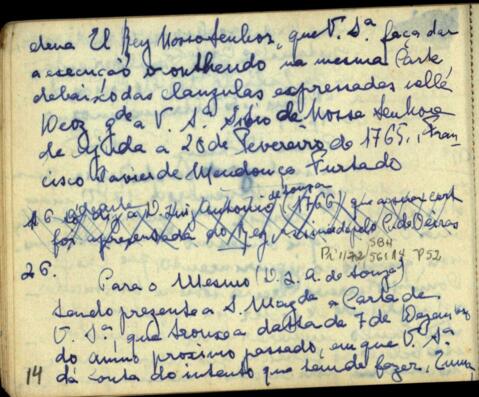 dena El Rey Nosso Senhor, que V. Sª faça dar
a execução o conthendo na mesma Carta
debaixo das clauzulas expressadas nella
Deos gde a V. Sª Sitio de Nossa Senhora
de Ajuda a 20 de Fevereiro de 1765., Fran-
cisco Xavier de Mendonça Furtado
de Souza
Carta
a D. Luiz Antonio (1766) que a sua cart
foi apresentada ao Rey, assinada pelo C. de Oeiras
Pi 1172 SBH 56114 P52
26.
Para o Mesmo (D. L. A. de Souza)
Sendo prezente a S. Magde a Carta de
V. Sª que trouxe a datta de 7 de Dezembro
do anno proximo passado, em que V. Sª
dá conta do intento que tem de fazer,
14